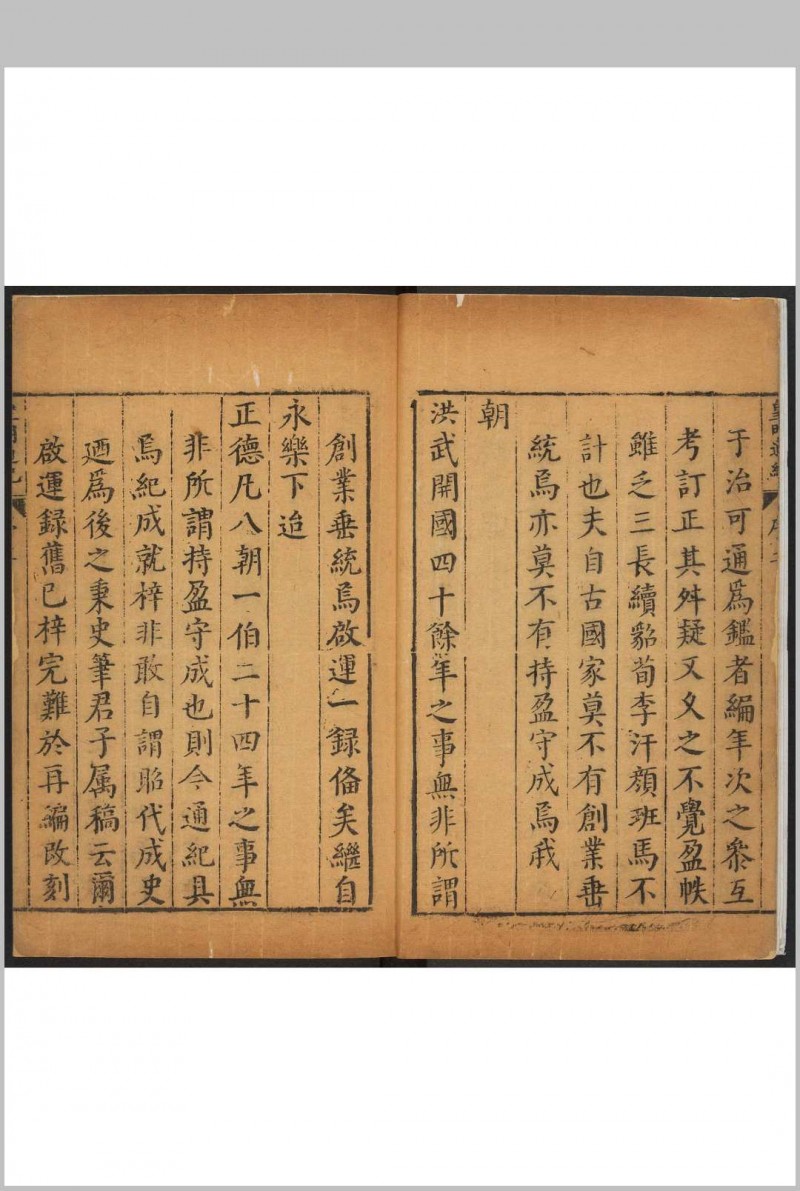 于治可通爲鑑者編年次之叅互
考訂正其舛疑又久之不覺盈帙
雖乏三長續貂荀李汗顏班馬不
計也夫自古國家莫不有創業垂
統焉亦莫不有持盈守成焉我
朝
洪武開國四十餘年之事無非所謂
創業垂統焉啟運一録俻矣繼自
永樂下迨
正德凡八朝一伯二十四年之事無
非所謂持盈守成也則今通紀具
焉紀成就梓非敢自謂昭代成史
迺爲後之秉史筆君子属稿云爾
啟運録舊已梓完難於再編改刻